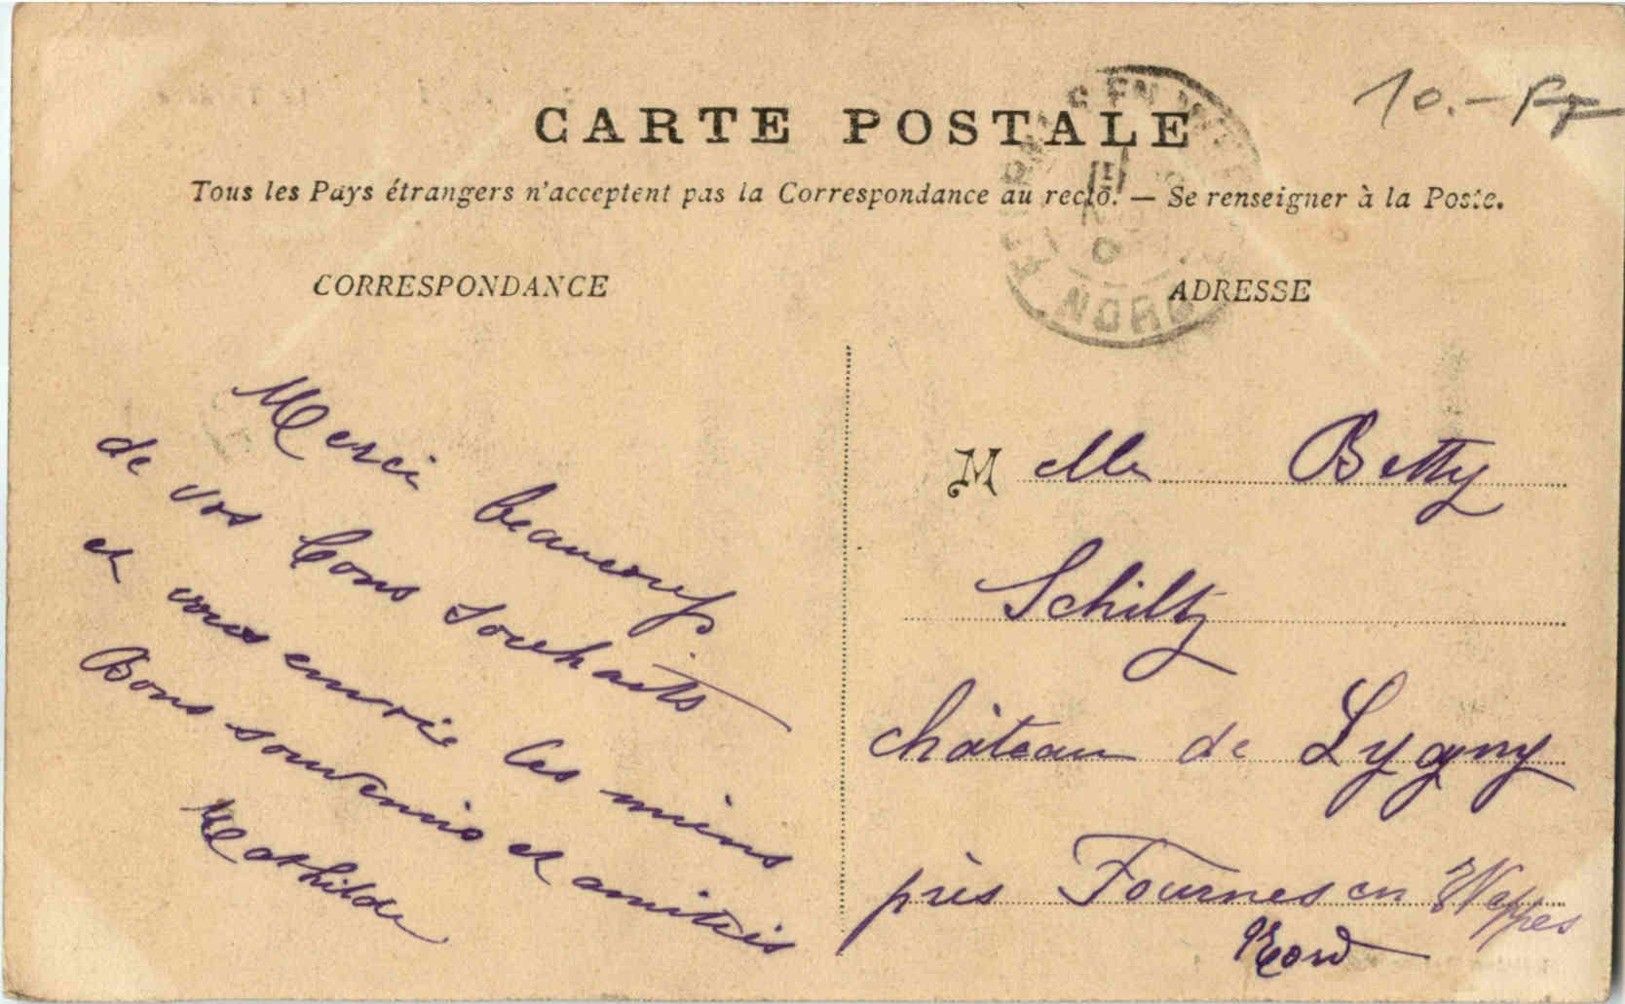 10.-
CARTE POSTALE
Tous les Pays étrangers n'acceptent pas la Correspondance au recto. — Se renseigner à la Poste.
CORRESPONDANCE
ADRESSE
NORD
Merci beaucoup
de vos bons souhaits
et vous envoie les miens
Bons souvenirs et amitiés
Mathilde
Melle Betty
Schiltz
château de Lygny
près Fournes en Wappes
Nord